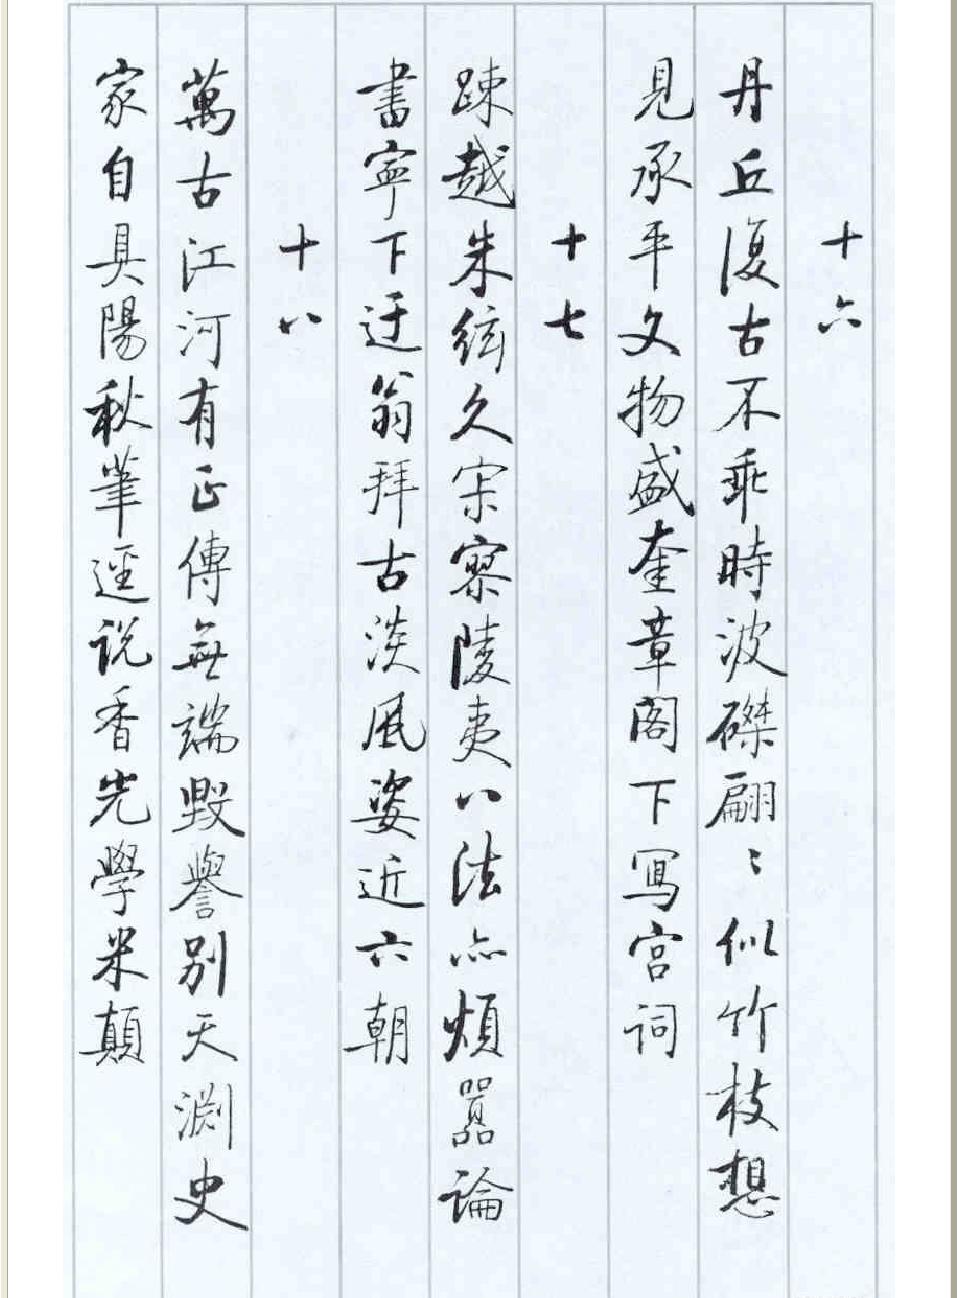 十六
丹丘復古不乖時波磔翩〻似竹枝想
見承平文物盛奎章閣下寫宫词
十七
疎越朱絃久寂寥陵夷八法亦煩嚣論
書寧下迂翁拜古淡風姿近六朝
十八
萬古江河有正傳無端毀譽別天淵史
家自具陽秋筆逕说香光學米顛